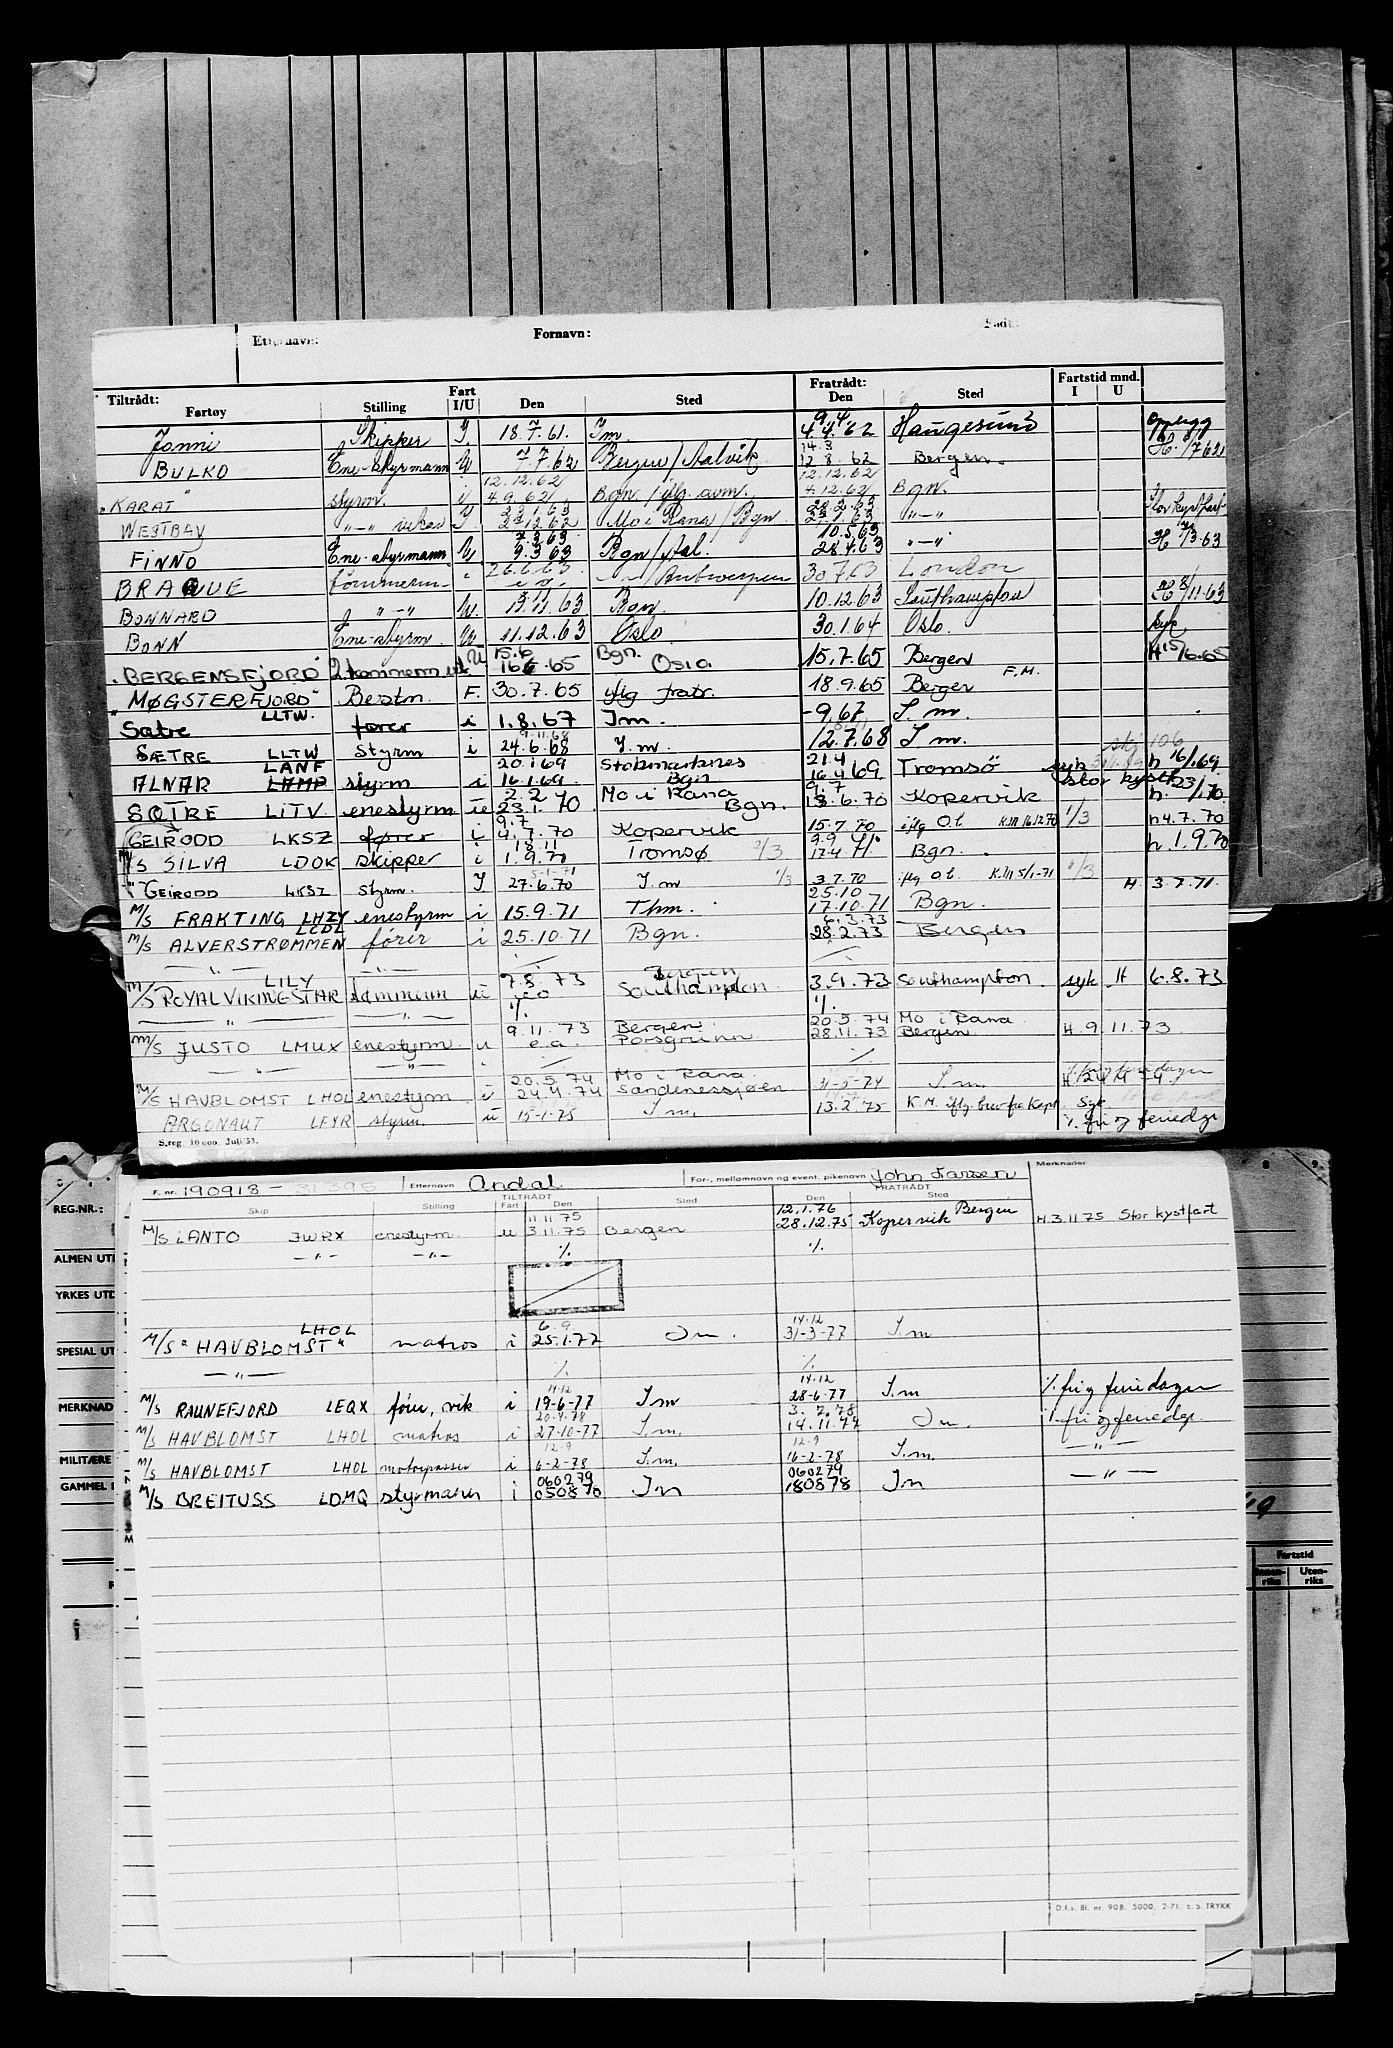 Etternavn: Fornavn: Født:
Tiltrådt: Fratrådt: Fartstid mnd.
Fartøy Stilling Fart I/U Den Sted Den Sted I U
9.4
Jonni Skipper I. 18.7.61. I m. 4.4.62 Haugesund Opplegg
14.3
BULKO Ene-styrmann U 7.7.62 Bergen/Aalvik 12.8.62 Bergen. H. /7 62
12.12.62 12.12.62
"KARAT" styrm. i 4.9.62 Bgn. 4.12.62 Bgn.
WESTBAY "-" I. 23.12.62 Mo i Rana/Bgn. 27.1.63 "-" Stor kystfart
7.3.63 10.5.63
FINNO Ene-styrmann U 9.3.63 Bgn/Aal. 28.4.63 "-" H 7/3.63
26.6.63
BRAQUE tømmerm. e.o. Antwerpen 30.7.63 London
BONNARD "-" U. 13.11.63 Bgn. 10.12.63 Southampton H 8/11.63
BONN Ene-styrm. U. 11.12.63 Oslo. 30.1.64 Oslo. syk
15.6 Bgn.
"BERGENSFJORD" 2.tømmerm. U 16.6.65 Oslo. 15.7.65 Bergen H 15/6.65
"MØGSTERFJORD" Bestm. F. 30.7.65 iflg fratr. 18.9.65 Bergen F.M.
LLTW.
Satre fører i 1.8.67 I m. -9.67 I. m.
9.11.68
SÆTRE LLTW styrm i 24.6.68 I. m. 12.7.68 I m. skj 106
LANF 20.1.69 Stokmarknes 21.4
ALNAR LAMP styrm i 16.1.69 Bgn 16.4.69 Tromsø syk h 16/1.69
2.2 Mo i Rana 9.7 stor kystf.
SÆTRE LITV enestyrm u 23.1.70 Bgn. 13.6.70 Kopervik h. 23/1.70
9.7
GEIRODD LKSZ fører i 4.7.70 Kopervik 15.7.70 iflg O.l. K.M 16.12.70 1/3 h 4.7.70
18.11 9.9
M/S SILVA LDOK skipper i 1.9.70 Tromsø 1/3 17.4.71 Bgn. h 1.9.70
5-1-71
" GEIRODD LKSZ styrm. I 27.6.70 I. m 1/3 3.7.70 iflg O.l. K.M 5/1-71 1/3 H 3.7.71.
25.10
M/S FRAKTING LHZY enestyrm i 15.9.71 Thm. 17.10.71 Bgn.
LCDL 6.3.73
M/S ALVERSTRØMMEN fører i 25.10.71 Bgn. 28.2.73 Bergen
— " — — " — ./. ./.
LILY 7.8.73 Bergen
M/S ROYAL VIKING STAR tømmerm u e.o Southampton 3.9.73 Southampton syk H 6.8.73
— " — — " — ./. ./.
9.11.73 Bergen 20.5.74 Mo i Rana
M/S JUSTO LMUX enestyrm. u e.a. Porsgrunn 28.11.73 Bergen H. 9.11.73
— " — — " — ./. ./.
20.5.74 Mo i Rana
M/S HAVBLOMST LHOL enestyrm. u 24.4.74 Sandnessjøen 31-5-74 I. m.
ARGONAUT LFYR styrm. u 15-1-75 I. m. 13.2.75 K.M. iflg. brev fra Kapt. Syk
S.reg. 10 000. Juli 53. ./. fri og feriedgr
F. nr. 190918 - 31 395 Etternavn Andal For-, mellomnavn og event. pikenavn John Larsen Merknader
TILTRÅDT FRATRÅDT
Skip Stilling Fart Den Sted Den Sted
11.11.75 12.1.76 Bergen
M/S LANTO JWRX enestyrm. u 3.11.75 Bergen 28.12.75 Kopervik H.3.11 75 Stor kystfart
— " — — " — ./. ./.
LHOL 6.9. 14.12
M/S "HAVBLOMST" matros i 25.1.77 I m. 31-3-77 I. m
— " — ./. ./.
14.12 14.12
M/S RAUNEFJORD LEQX fører, vik i 19-6-77 I. m 28-6-77 I. m ./. fri og feriedager
20.4.78 3.7.78
M/S HAVBLOMST LHOL matros i 27-10-77 I. m. 19.11.77 I m. ./. fri og feriedgr.
12.9 12.9
M/S HAVBLOMST LHOL motorpasser i 6-2-78 I. m. 16-2-78 I. m. — " —
060279 060279
M/S BREITUSS LDMQ styrmann i 050870 I m 180878 I m — " —
D.f.s. Bl. nr. 908. 5000. 2-71. E. S. TRYKK
REG.NR.:
ALMEN UTD
YRKES UTD
SPESIAL UT
MERKNAD
MILITÆRE
GAMMEL
Fartstid
Innen-riks Uten-riks